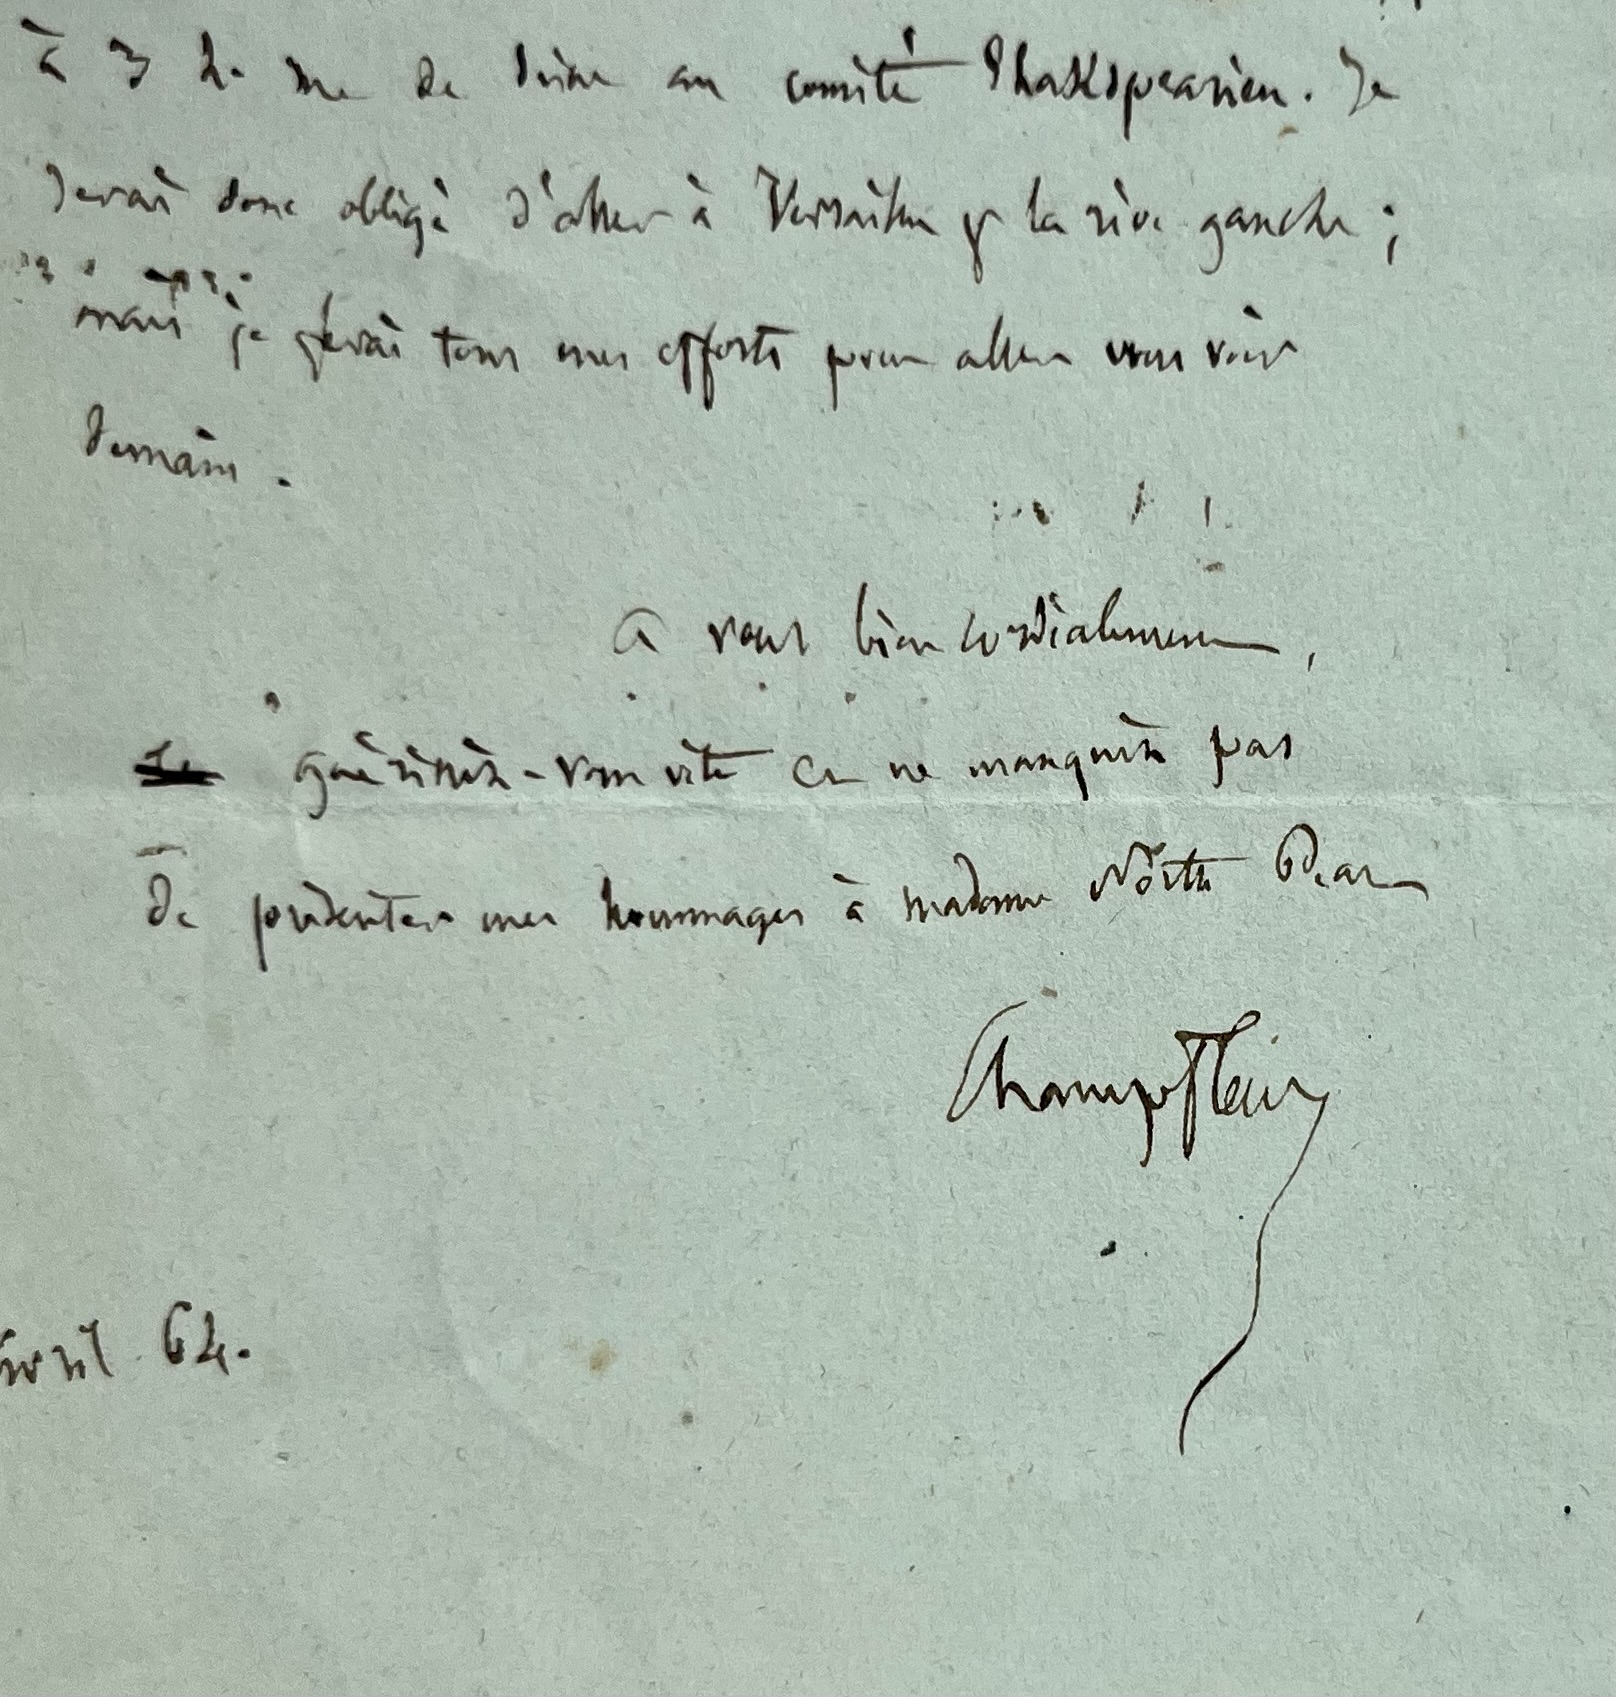 à 3 h. me de au comité Shakspearien. Je
serai donc obligé d'aller à Versailles p la rive gauche ;
mais je ferai tous mes efforts pour aller vous voir
demain.
à vous bien cordialement,
guérissez-vous vite et ne manquez pas
de présenter mes hommages à madame North Pear
Champfleury
avril 64.